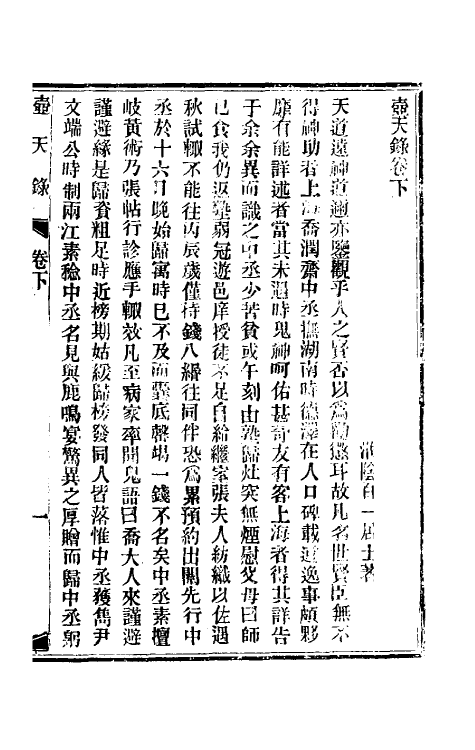 壺天錄卷下
淮陰百一居士著
天道遠神道邇亦鑒觀乎人之賢否以爲勸懲耳故凡名世賢臣無不
得神助者上海喬潤齋中丞撫湖南時德澤在人口碑載道逸事頗夥
靡有能詳述者當其未遇時鬼神呵佑甚奇友有客上海者得其詳告
于余余異而識之中丞少苦貧或午刻由塾歸灶突無煙慰父母曰師
已食我仍返塾弱冠遊邑庠授徒不足自給繼家張夫人紡織以佐遇
秋試輒不能往丙辰歲僅待錢八緡往同伴恐爲累預約出闈先行中
丞於十六日晚始歸寓時已不及而囊底罄場一錢不名矣中丞素擅
岐黃術乃張帖行診應手輒效凡至病家率聞鬼語曰喬大人來謹避
謹避繇是歸資粗足時近榜期姑緩歸榜發同人皆落惟中丞獲雋尹
文端公時制兩江素稔中丞名見與鹿鳴宴驚異之厚贈而歸中丞躬
壺天錄
卷下
一